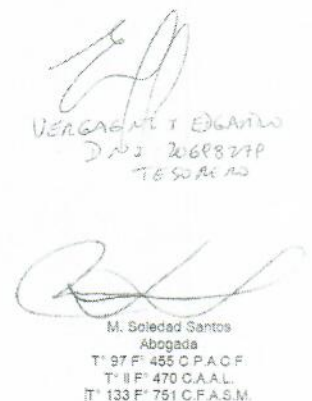 VERGAGNI EDGARDO
DNI 20698279
TESORERO
M. Soledad Santos
Abogada
T° 97 F° 455 C.P.A.C.F
T° II F° 470 C.A.A.L.
T° 133 F° 751 C.F.A.S.M.